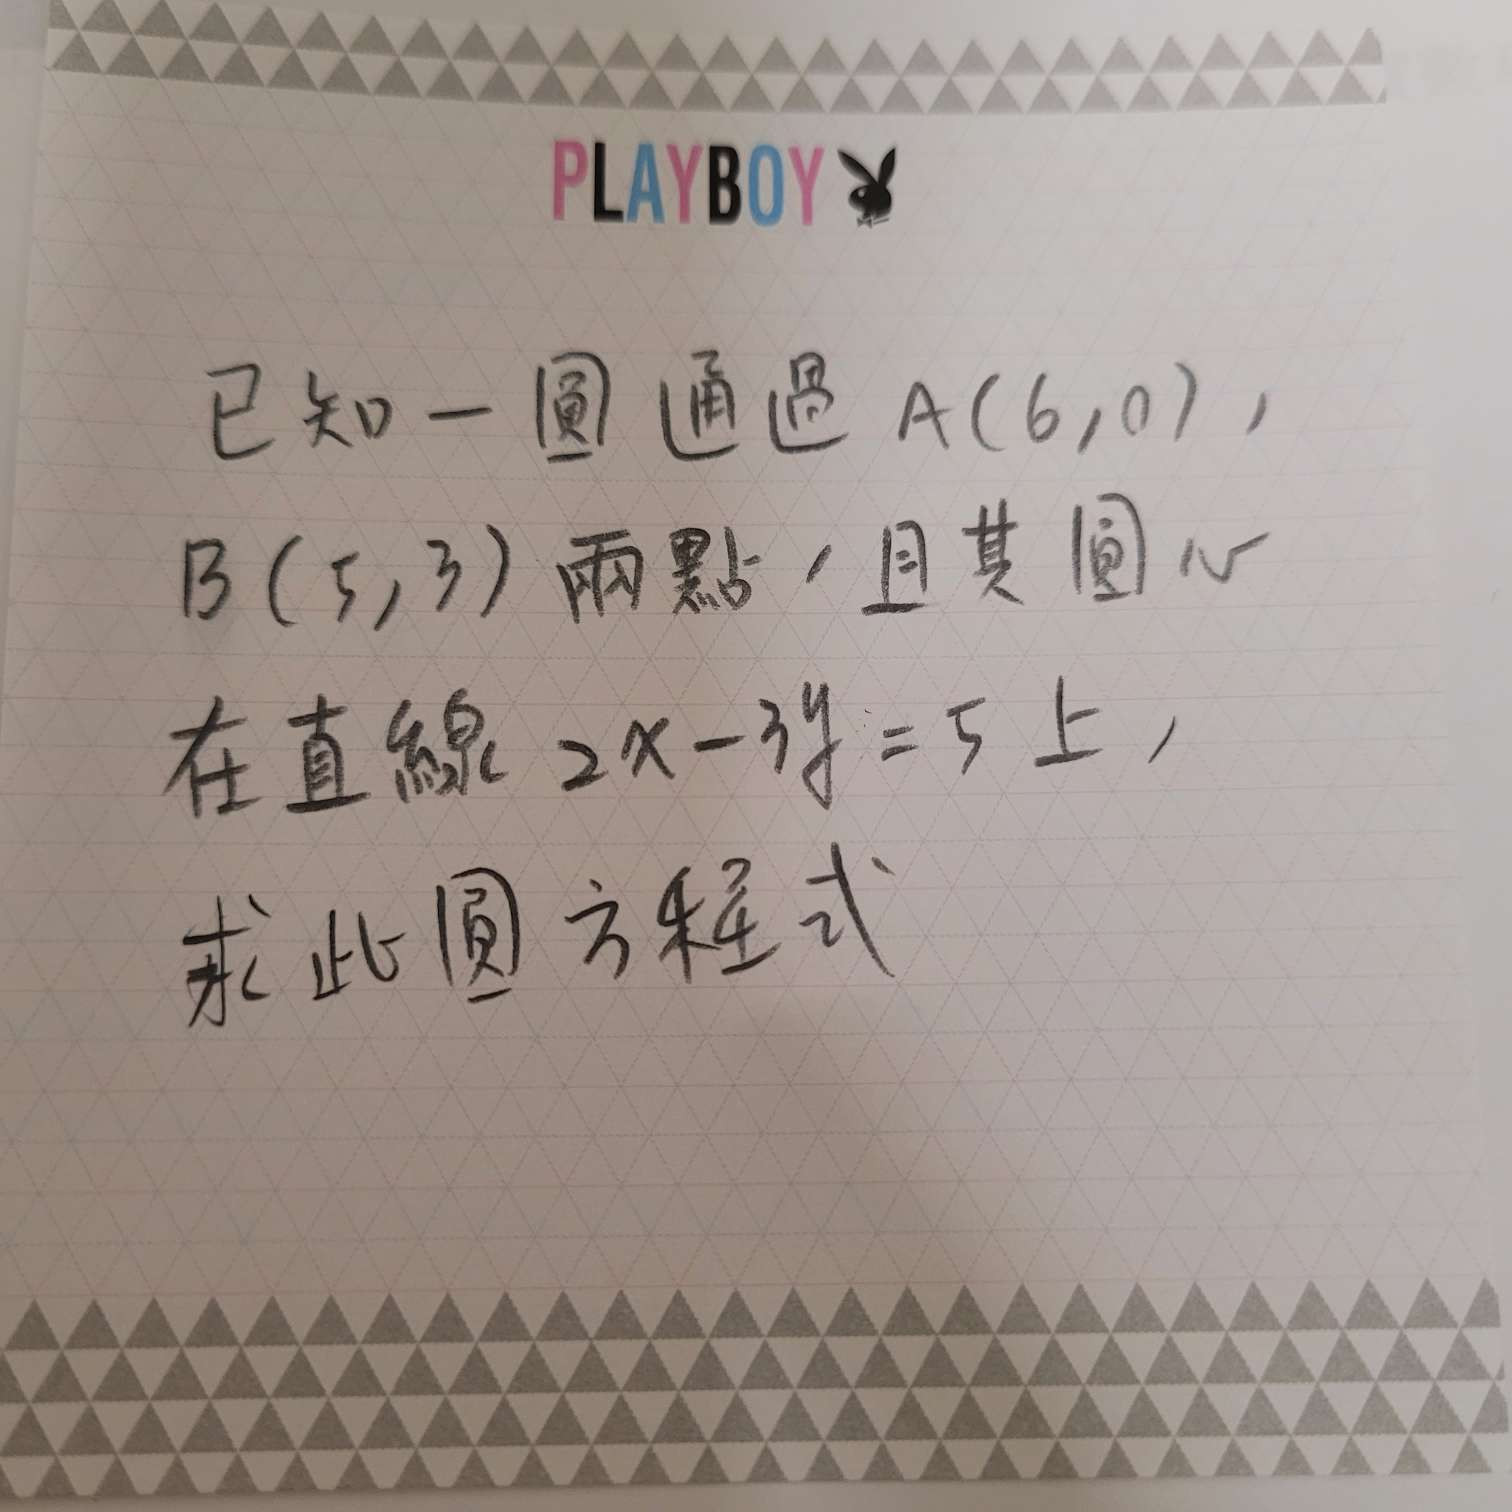 PLAYBOY
已知一圓通過A(6,0),
B(5,3)兩點,且其圓心
在直線2x-3y=5上,
求此圓方程式